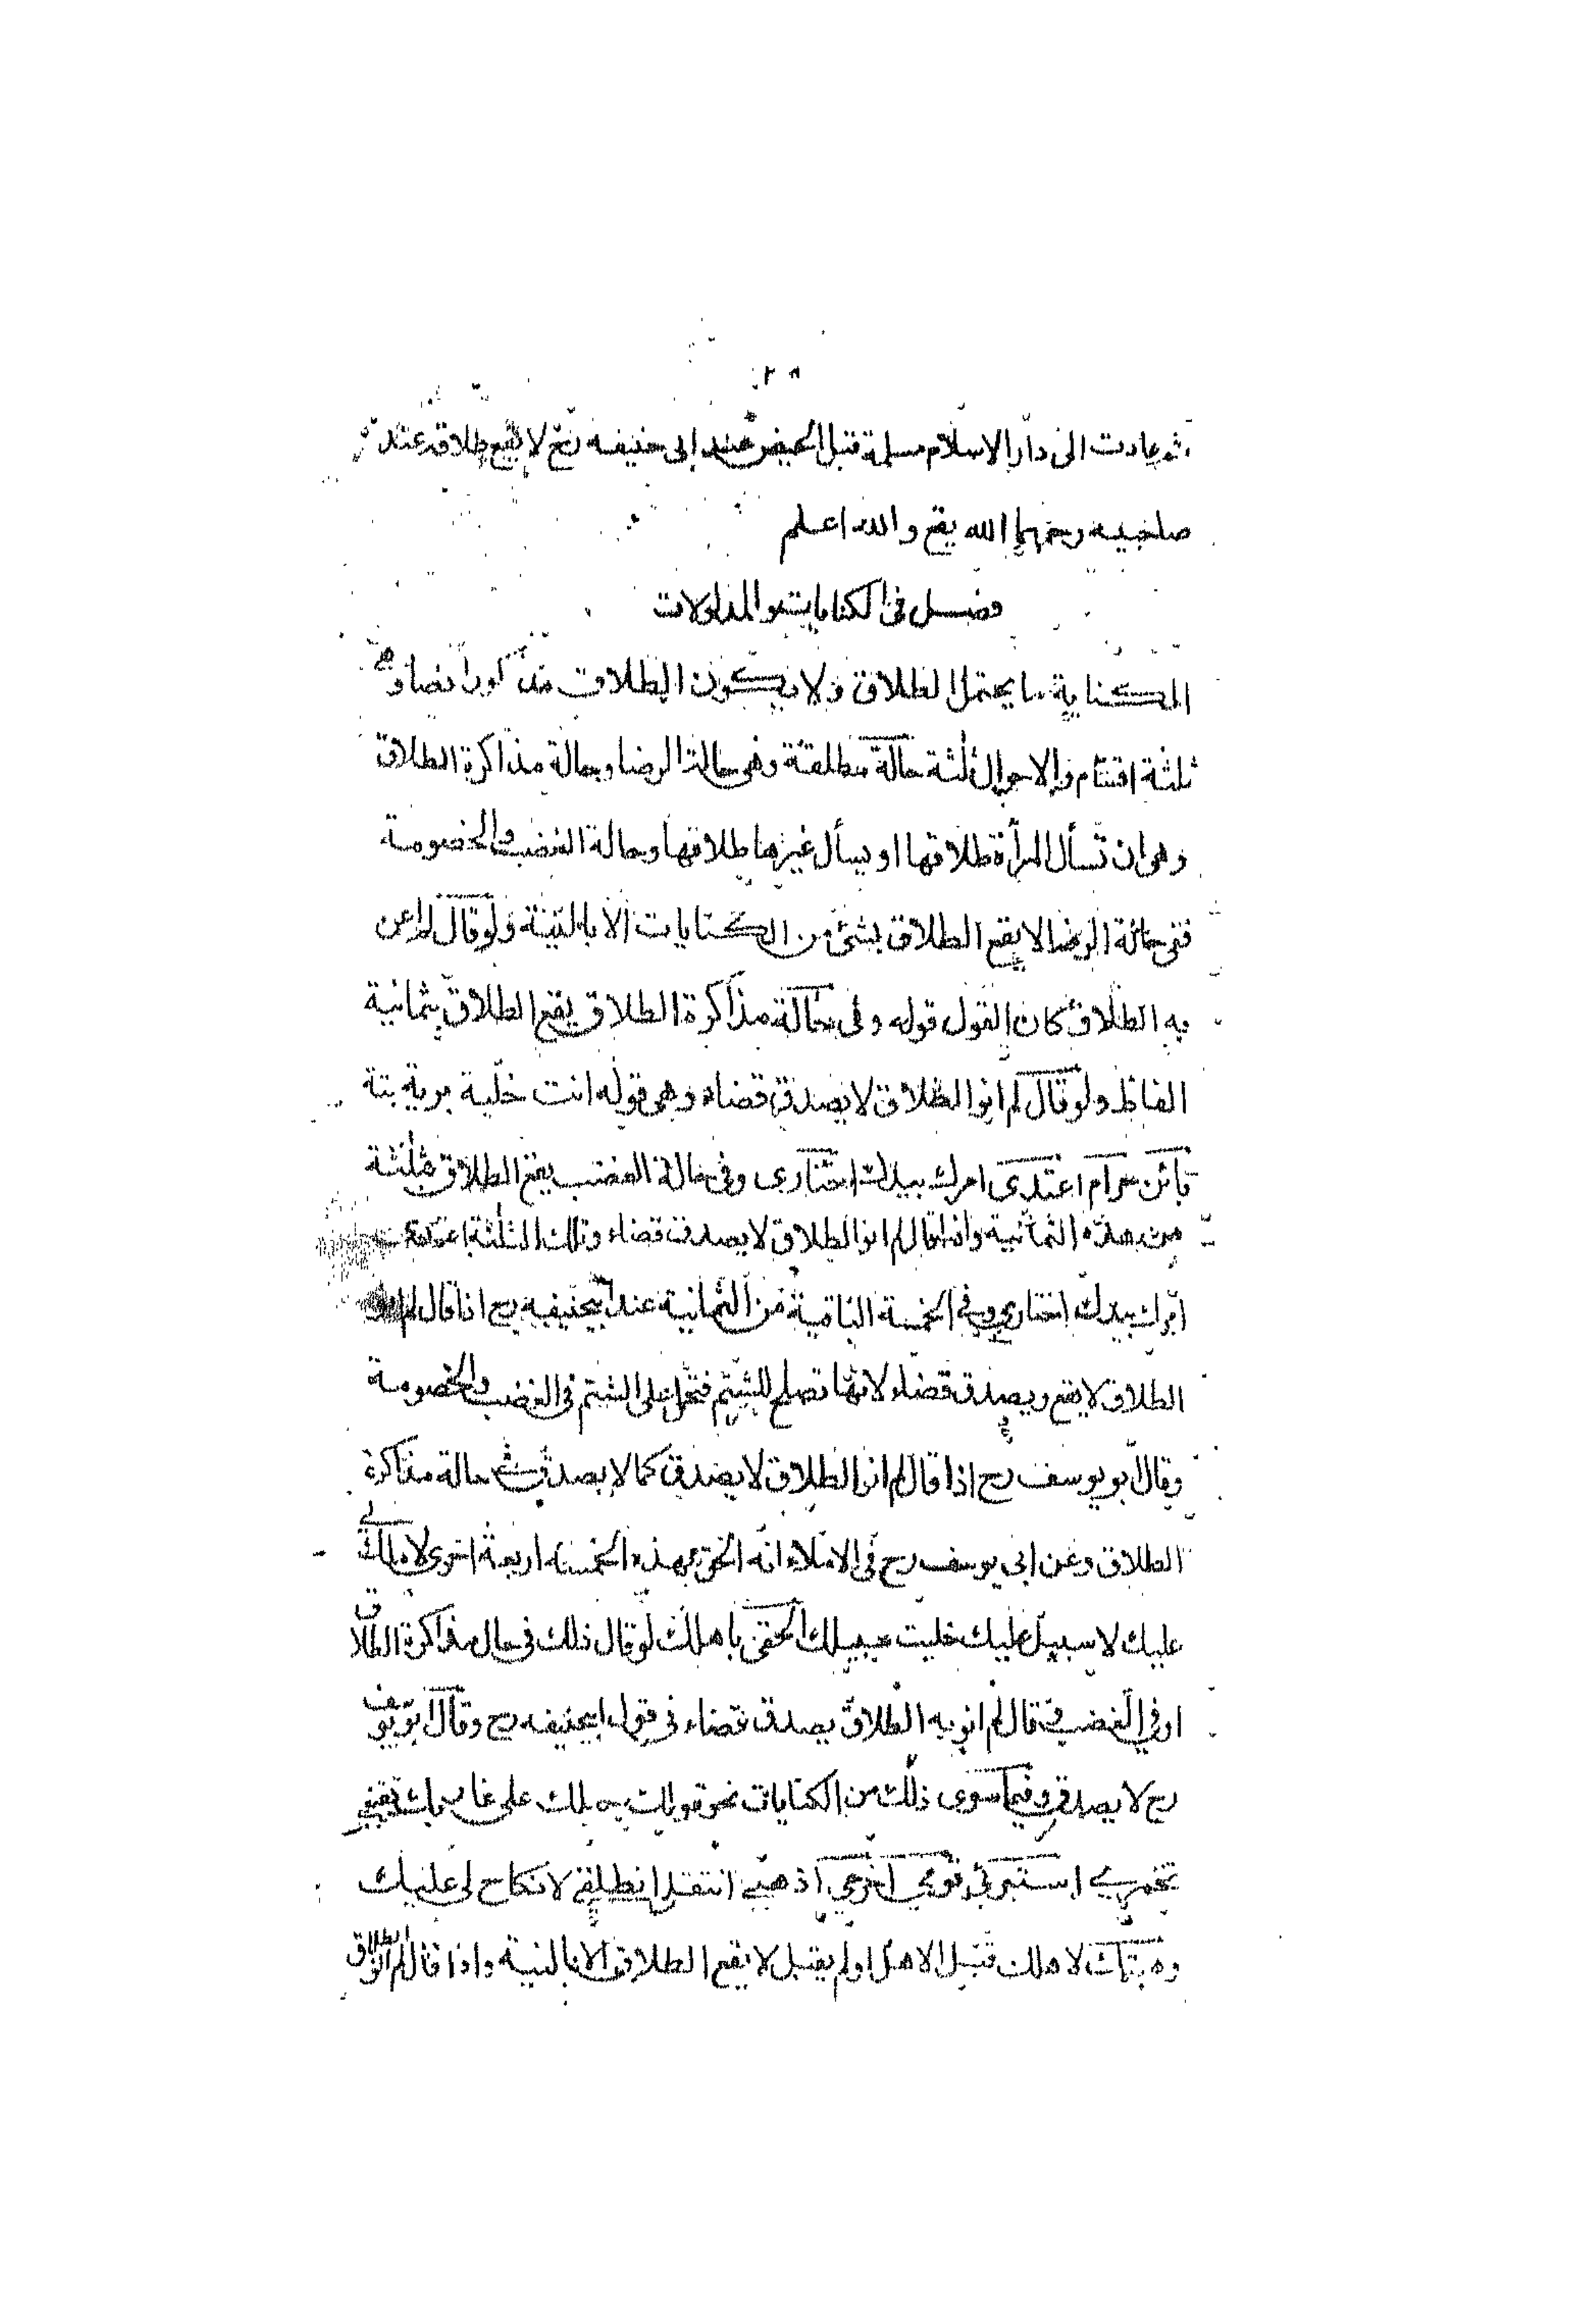 ثم عادت الى دار الاسلام مسلمة قبل الحيض عند ابى حنيفه رح لا يقع طلاقه عند
صاحبيه رحمهما الله يقع والله اعلم
فصل فى الكنايات والمدلولات
الكناية ما يحتمل الطلاق ولا يكون الطلاق مذكورا نصا وهى
ثلثة اقسام والاحوال ثلثة حالة مطلقة وهى حالة الرضا وحالة مذاكرة الطلاق
وهى ان تسأل المرأة طلاقها او يسأل غيرها طلاقها وحالة الغضب والخصومة
ففى حالة الرضا لا يقع الطلاق بشئ من الكنايات الا بالنية ولو قال لم اعن
به الطلاق كان القول قوله وفى حالة مذاكرة الطلاق يقع الطلاق بثمانية
الفاظ ولو قال لم انو الطلاق لا يصدق قضاء وهى قوله انت خلية برية بتة
بائن حرام اعتدى امرك بيدك اختارى وفى حالة الغضب يقع الطلاق بثلثة
من هذه الثمانية واذا قال لم انو الطلاق لا يصدق قضاء وتلك الثلثة اعتدى
امرك بيدك اختارى وفى الخمسة الباقية من الثمانية عند ابيحنيفه رح اذا قال لم انو
الطلاق لا يقع ويصدق قضاء لانها تصلح للشتم فتحمل على الشتم فى الغضب والخصومة
وقال ابو يوسف رح اذا قال لم انو الطلاق لا يصدق كما لا يصدق فى حالة مذاكرة
الطلاق وعن ابى يوسف رح فى الاملاء انه الحق بهذه الخمسة اربعة اخرى لا ملك لى
عليك لا سبيل عليك خليت سبيلك الحقى باهلك لو قال ذلك فى حال مذاكرة الطلاق
او فى الغضب وقال لم انو به الطلاق يصدق قضاء فى قول ابيحنيفه رح وقال ابو يوسف
رح لا يصدق وفيما سوى ذلك من الكنايات نحو قولك حبلك على غاربك تقنعى
تخمرى استبرئى قومى اخرجى اذهبى انتقلى انطلقى لا نكاح لى عليك
وهبتك لاهلك قبل الاهل او لم يقبل لا يقع الطلاق الا بالنية واذا قال لم انو الطلاق